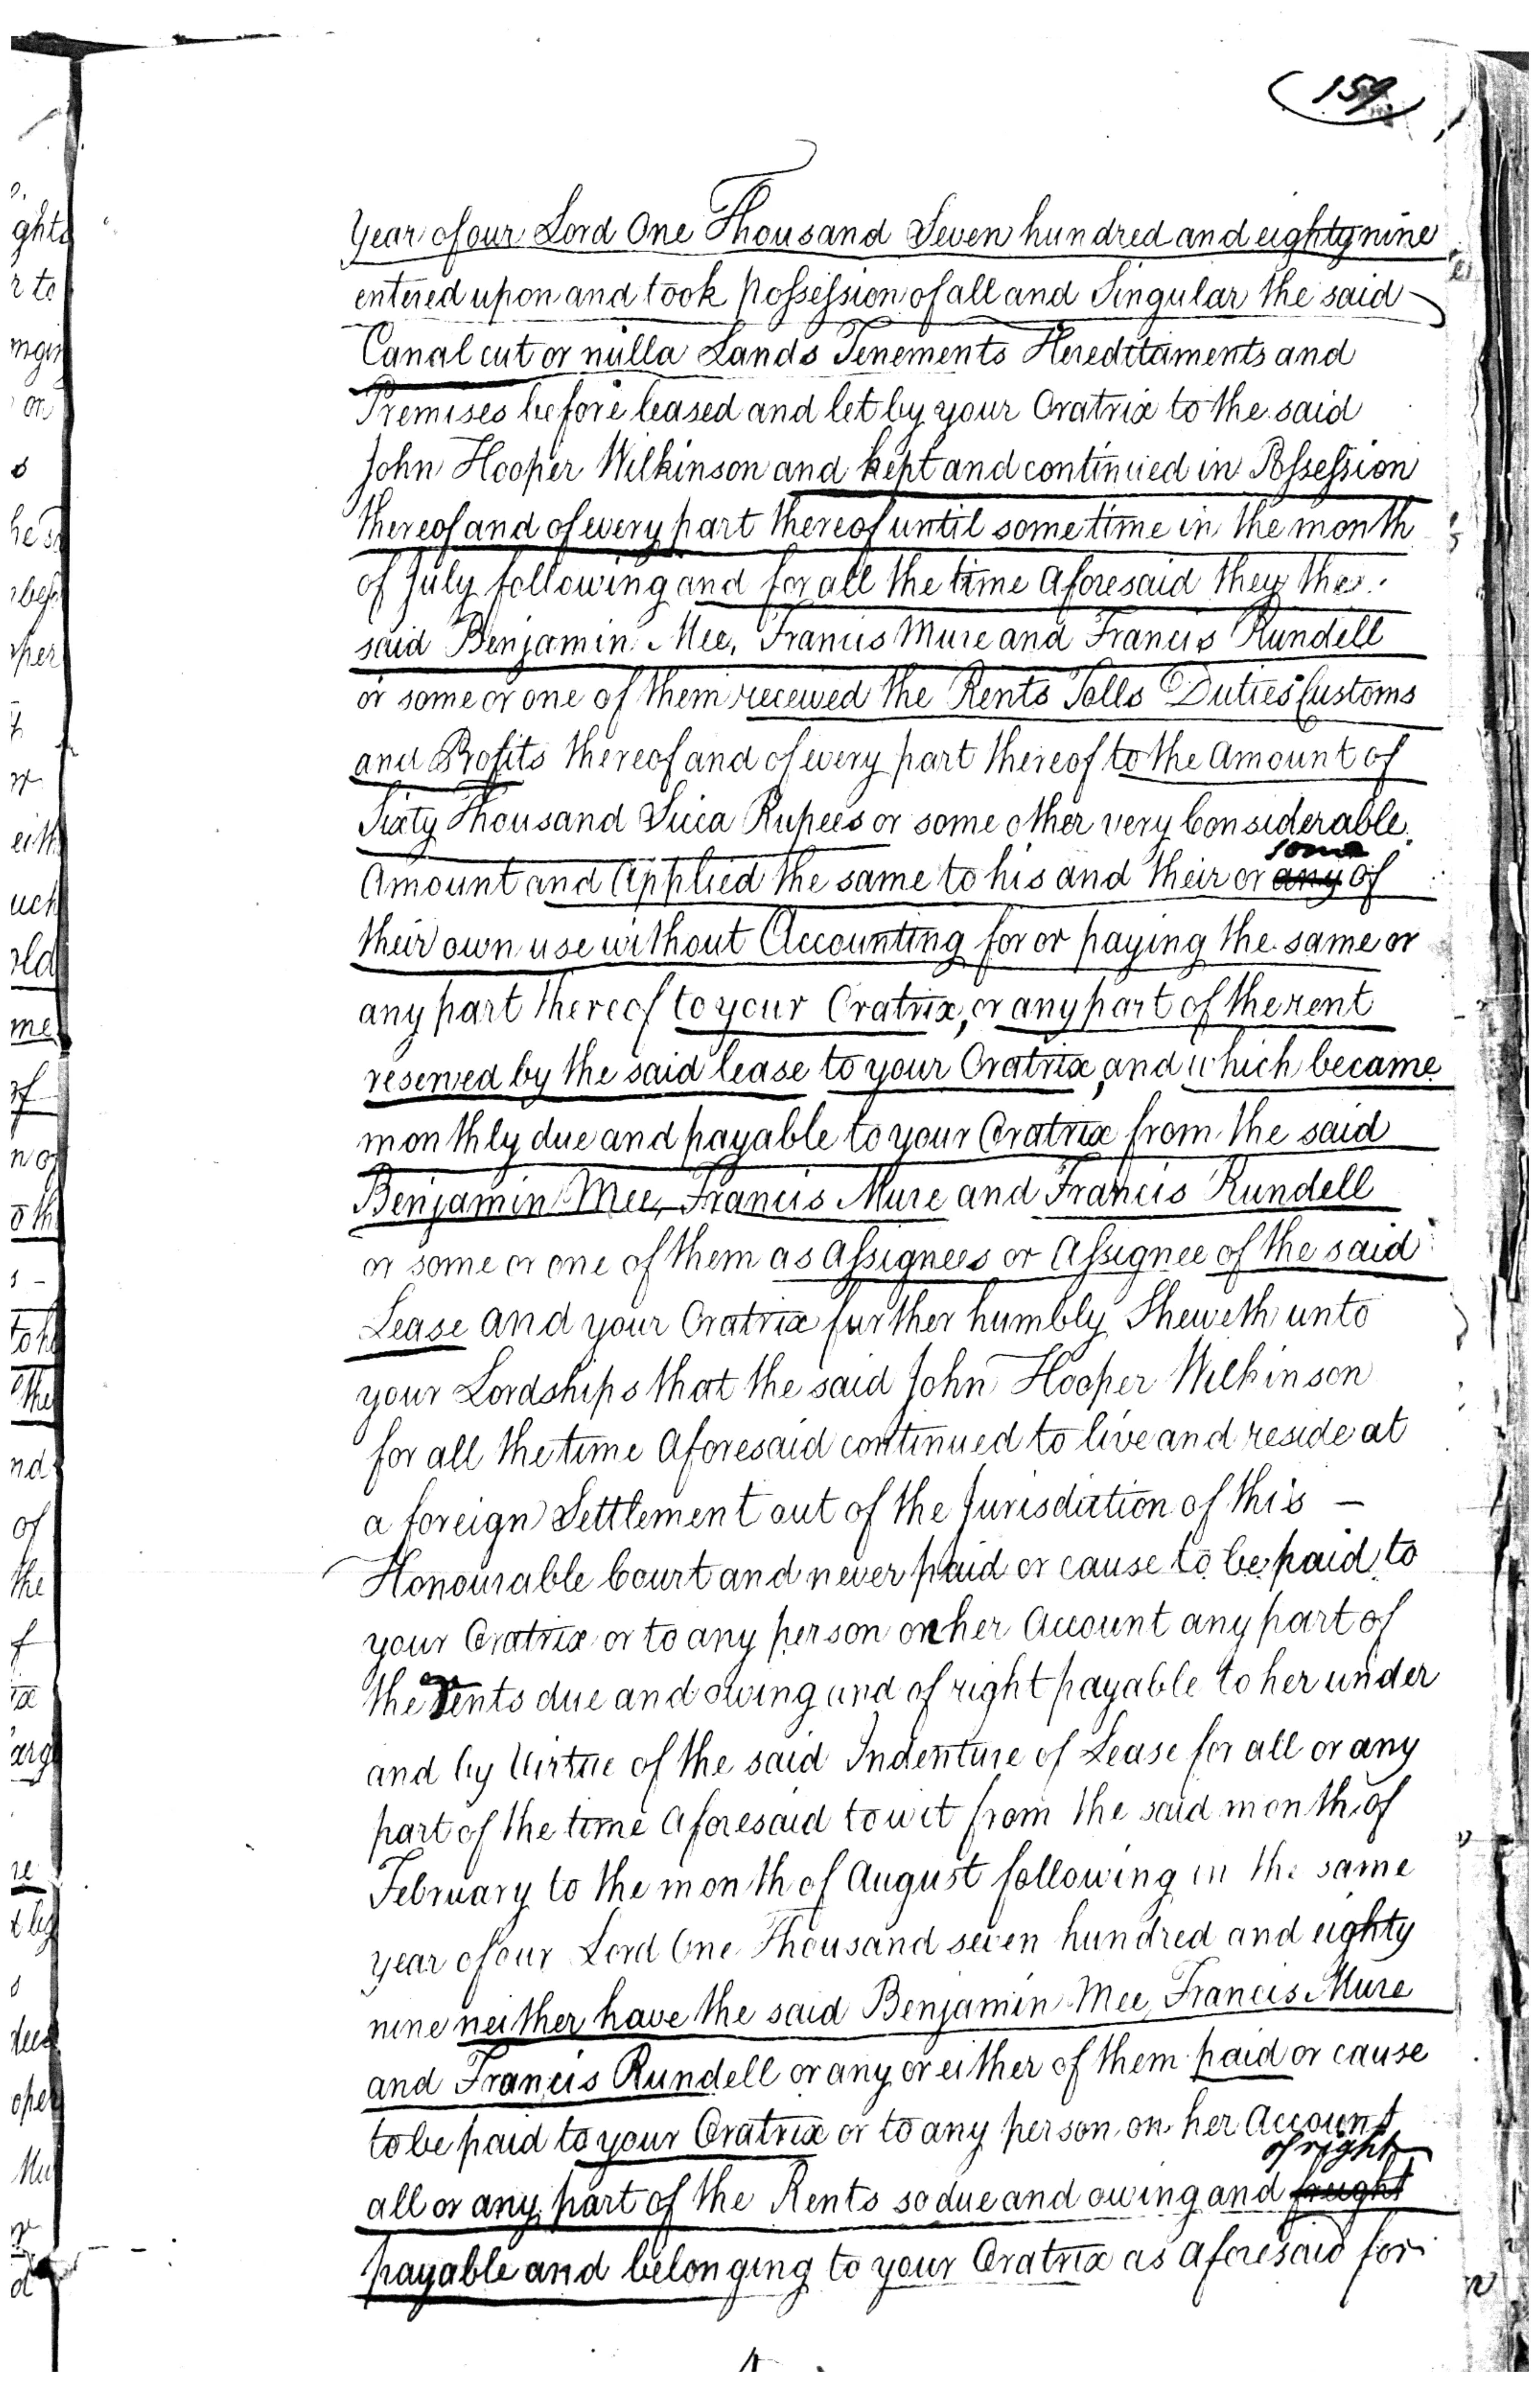 (159)
Year of our Lord One Thousand Seven hundred and eighty nine
entered upon and took possession of all and Singular the said
Canal cut or nulla Lands Tenements Hereditaments and
Premises before leased and let by your Oratrix to the said
John Hooper Wilkinson and kept and continued in Possession
thereof and of every part thereof until sometime in the month
of July following and for all the time aforesaid they the
said Benjamin Mee, Francis Mure and Francis Rundell
or some or one of them received the Rents Tolls Duties Customs
and Profits thereof and of every part thereof to the Amount of
Sixty Thousand Sicca Rupees or some other very Considerable
some
Amount and Applied the same to his and their or any of
their own use without Accounting for or paying the same or
any part thereof to your Oratrix, or any part of the rent
reserved by the said lease to your Oratrix, and which became
monthly due and payable to your Oratrix from the said
Benjamin Mee, Francis Mure and Francis Rundell
or some or one of them as Assignees or Assignee of the said
Lease and your Oratrix further humbly Sheweth unto
your Lordships that the said John Hooper Wilkinson
for all the time Aforesaid continued to live and reside at
a foreign Settlement out of the Jurisdiction of this —
Honourable Court and never paid or cause to be paid to
your Oratrix or to any person on her Account any part of
the rents due and owing and of right payable to her under
and by Virtue of the said Indenture of Lease for all or any
part of the time Aforesaid to wit from the said month of
February to the month of August following in the same
year of our Lord One Thousand seven hundred and eighty
nine neither have the said Benjamin Mee, Francis Mure
and Francis Rundell or any or either of them paid or cause
to be paid to your Oratrix or to any person on her Account
of right
all or any part of the Rents so due and owing and freight
payable and belonging to your Oratrix as Aforesaid for